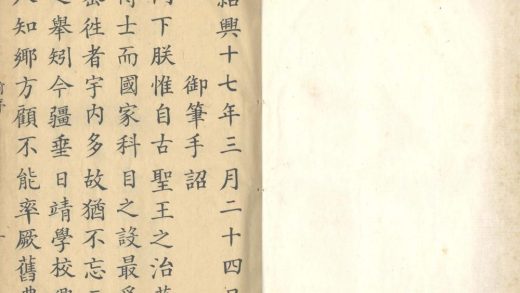 紹興十七年三月二十四日
御筆手詔
門下朕惟自古聖王之治
士而國家科目之設最爲
密徃者宇内多故猶不忘
之舉矧今疆垂日靖學校興
人知鄉方顧不能率厥舊典